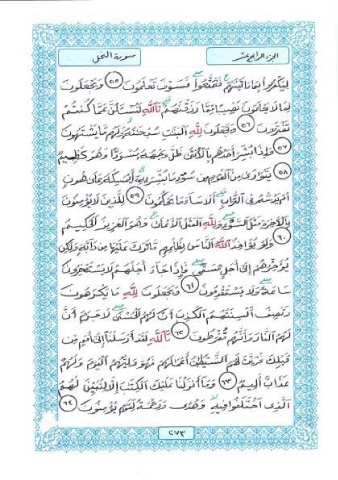 الجزء الرابع عشر
سورة النحل
لِيَكْفُرُوا بِمَا ءَاتَيْنَٰهُمْ فَتَمَتَّعُوا فَسَوْفَ تَعْلَمُونَ ٥٥ وَيَجْعَلُونَ
لِمَا لَا يَعْلَمُونَ نَصِيبًا مِّمَّا رَزَقْنَٰهُمْ تَاللَّهِ لَتُسْـَٔلُنَّ عَمَّا كُنتُمْ
تَفْتَرُونَ ٥٦ وَيَجْعَلُونَ لِلَّهِ الْبَنَٰتِ سُبْحَٰنَهُ وَلَهُم مَّا يَشْتَهُونَ
٥٧ وَإِذَا بُشِّرَ أَحَدُهُم بِالْأُنثَىٰ ظَلَّ وَجْهُهُ مُسْوَدًّا وَهُوَ كَظِيمٌ
٥٨ يَتَوَٰرَىٰ مِنَ الْقَوْمِ مِن سُوءِ مَا بُشِّرَ بِهِ أَيُمْسِكُهُ عَلَىٰ هُونٍ
أَمْ يَدُسُّهُ فِي التُّرَابِ أَلَا سَاءَ مَا يَحْكُمُونَ ٥٩ لِلَّذِينَ لَا يُؤْمِنُونَ
بِالْءَاخِرَةِ مَثَلُ السَّوْءِ وَلِلَّهِ الْمَثَلُ الْأَعْلَىٰ وَهُوَ الْعَزِيزُ الْحَكِيمُ
٦٠ وَلَوْ يُؤَاخِذُ اللَّهُ النَّاسَ بِظُلْمِهِم مَّا تَرَكَ عَلَيْهَا مِن دَابَّةٍ وَلَٰكِن
يُؤَخِّرُهُمْ إِلَىٰ أَجَلٍ مُّسَمًّى فَإِذَا جَاءَ أَجَلُهُمْ لَا يَسْتَـْٔخِرُونَ
سَاعَةً وَلَا يَسْتَقْدِمُونَ ٦١ وَيَجْعَلُونَ لِلَّهِ مَا يَكْرَهُونَ
وَتَصِفُ أَلْسِنَتُهُمُ الْكَذِبَ أَنَّ لَهُمُ الْحُسْنَىٰ لَا جَرَمَ أَنَّ
لَهُمُ النَّارَ وَأَنَّهُم مُّفْرَطُونَ ٦٢ تَاللَّهِ لَقَدْ أَرْسَلْنَا إِلَىٰ أُمَمٍ مِّن
قَبْلِكَ فَزَيَّنَ لَهُمُ الشَّيْطَٰنُ أَعْمَٰلَهُمْ فَهُوَ وَلِيُّهُمُ الْيَوْمَ وَلَهُمْ
عَذَابٌ أَلِيمٌ ٦٣ وَمَا أَنزَلْنَا عَلَيْكَ الْكِتَٰبَ إِلَّا لِتُبَيِّنَ لَهُمُ
الَّذِي اخْتَلَفُوا فِيهِ وَهُدًى وَرَحْمَةً لِّقَوْمٍ يُؤْمِنُونَ ٦٤
٢٧٣